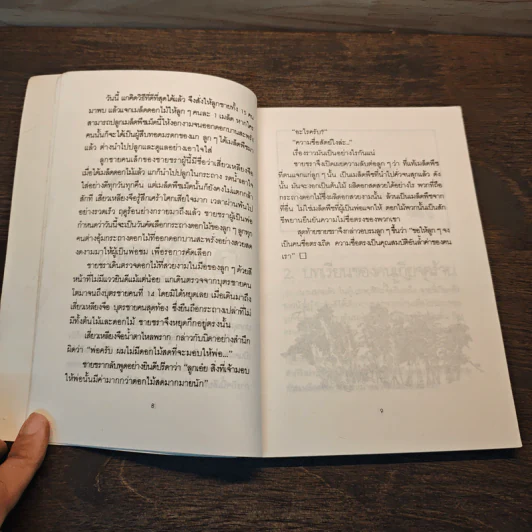 วันนี้ แกคิดวิธีที่ดีที่สุดได้แล้ว จึงสั่งให้ลูกชายทั้ง 15 คน
มาพบ แล้วแจกเมล็ดดอกไม้ให้ลูก ๆ คนละ 1 เมล็ด หากใคร
สามารถปลูกเมล็ดพืชนี้ให้งอกงามจนออกดอกบานสะพรั่ง
คนนั้นก็จะได้เป็นผู้สืบทอดมรดกของแก ลูก ๆ ได้เมล็ดพืช
แล้ว ต่างนำไปปลูกและดูแลอย่างเอาใจใส่
ลูกชายคนเล็กของชายชราผู้นี้มีชื่อว่าเสี่ยวเหลียงจือ
เมื่อได้เมล็ดดอกไม้แล้ว แกก็นำไปปลูกในกระถาง รดน้ำเอาใจ
ใส่อย่างดีทุกวันทุกคืน แต่เมล็ดพืชเมล็ดนั้นก็ยังคงไม่แตกหน่อ
สักที เสี่ยวเหลียงจือรู้สึกเศร้าโศกเสียใจมาก เวลาผ่านพ้นไป
อย่างรวดเร็ว ฤดูร้อนย่างกรายมาถึงแล้ว ชายชราผู้เป็นพ่อ
กำหนดว่าวันนี้จะเป็นวันคัดเลือกกระถางดอกไม้ของลูก ๆ ลูกทุก
คนต่างอุ้มกระถางดอกไม้ที่ออกดอกบานสะพรั่งอย่างสวยสด
งดงามมาให้ผู้เป็นพ่อชม เพื่อการคัดเลือก
ชายชราเดินตรวจดอกไม้ที่สวยงามในมือของลูก ๆ ด้วยสี
หน้าที่ไม่มีแววยินดีแม้แต่น้อย แกเดินตรวจจากบุตรชายคน
โตมาจนถึงบุตรชายคนที่ 14 โดยมิได้หยุดเลย เมื่อเดินมาถึง
เสี่ยวเหลียงจือ บุตรชายคนสุดท้อง ซึ่งยืนถือกระถางเปล่าที่ไม่
มีทั้งต้นไม้และดอกไม้ ชายชราจึงหยุดกึกอยู่ตรงนั้น
เสี่ยวเหลียงจือน้ำตาไหลพราก กล่าวกับบิดาอย่างสำนึก
ผิดว่า "พ่อครับ ผมไม่มีดอกไม้สดที่จะมอบให้พ่อ..."
ชายชรากลับพูดอย่างยินดีปรีดาว่า "ลูกเอ๋ย สิ่งที่เจ้ามอบ
ให้พ่อนั้นมีค่ามากกว่าดอกไม้สดมากมายนัก"
8
"อะไรครับ?"
"ความซื่อสัตย์ไงล่ะ..."
เรื่องราวมันเป็นอย่างไรกันแน่
ชายชราจึงเปิดเผยความลับต่อลูก ๆ ว่า ที่แท้เมล็ดพืช
ที่ตนแจกแก่ลูก ๆ นั้น เป็นเมล็ดพืชที่นำไปคั่วจนสุกแล้ว ดัง
นั้น มันจะงอกเป็นต้นไม้ ผลิดอกสดสวยได้อย่างไร พวกที่ถือ
กระถางดอกไม้ซึ่งผลิดอกสวยงามนั้น ล้วนเป็นเมล็ดพืชจาก
ที่อื่น ไม่ใช่เมล็ดพืชที่ผู้เป็นพ่อแจกให้ ดอกไม้พวกนั้นเป็นสัก
ขีพยานยืนยันความไม่ซื่อตรงของพวกเขา
สุดท้ายชายชราจึงกล่าวอบรมลูก ๆ ขึ้นว่า "ขอให้ลูก ๆ จง
เป็นคนซื่อตรงเถิด ความซื่อตรงเป็นคุณสมบัติอันล้ำค่าของคน
เรา"
9